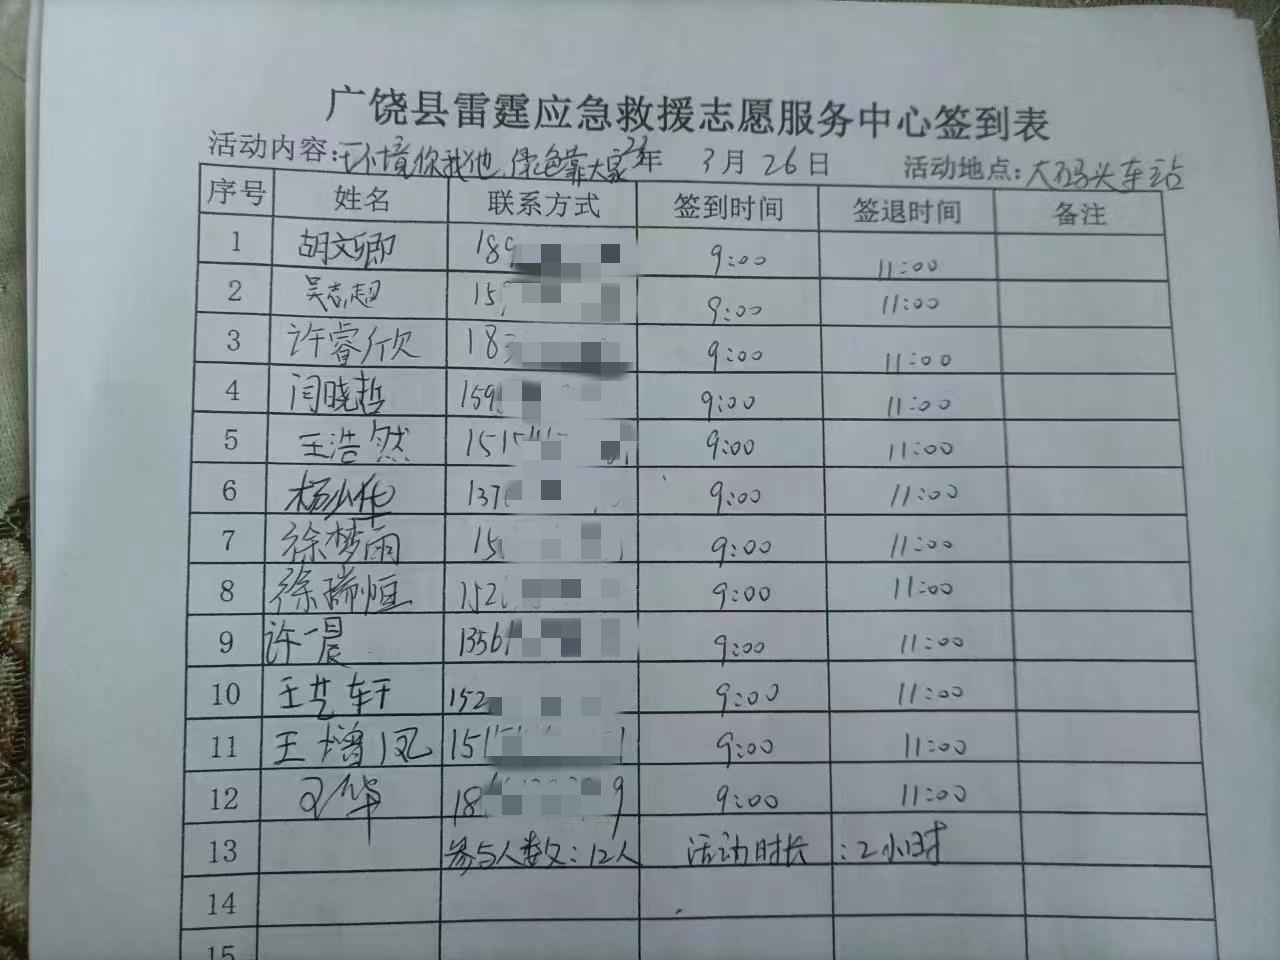 广饶县雷霆应急救援志愿服务中心签到表
活动内容：环境你我他，绿色靠大家 23年 3月26日 活动地点：大码头车站
序号 姓名 联系方式 签到时间 签退时间 备注
1 胡文卿 189 9:00 11:00
2 吴志超 15 9:00 11:00
3 许睿欣 18 9:00 11:00
4 闫晓哲 159 9:00 11:00
5 王浩然 1515 9:00 11:00
6 杨小华 137 9:00 11:00
7 徐梦雨 15 9:00 11:00
8 徐瑞恒 152 9:00 11:00
9 许一晨 1356 9:00 11:00
10 王艺轩 152 9:00 11:00
11 王增凤 151 9:00 11:00
12 18 9 9:00 11:00
13 参与人数：12人 活动时长：2小时
14
15